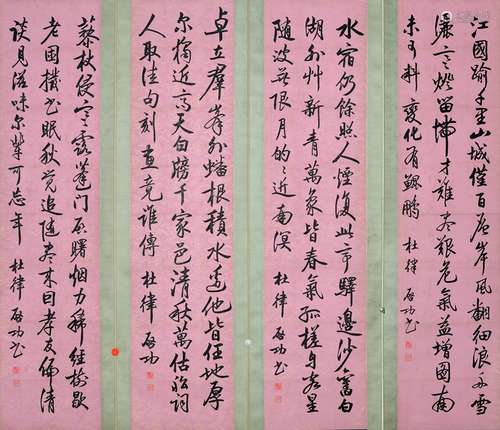 江國踰千里山城僅百層岸風翻細浪舟雪
灑寒燈留滯才難盡艱危氣益增圖南
未可料變化有鯤鵬 杜律 啟功書
水宿仍餘照人煙復此亭驛邊沙舊白
湖外草新青萬象皆春氣孤槎自客星
隨波無限月的的近南溟 杜律 啟功書
卓立羣峯外蟠根積水邊他皆任地厚
爾獨近高天白牓千家邑清秋萬估船詞
人取佳句刻畫竟誰傳 杜律 啟功
藜杖侵寒露蓬門啟曙烟力稀經樹歇
老困撥書眠秋覺追隨盡來因孝友偏清
談見滋味爾輩可忘年 杜律 啟功書